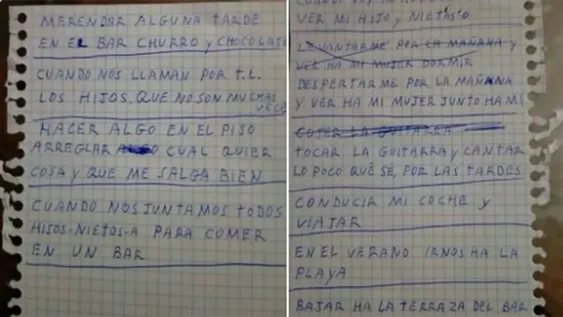 MERENDAR ALGUNA TARDE
EN EL BAR CHURRO Y CHOCOLATE
CUANDO NOS LLAMAN POR T.L.
LOS HIJOS. QUE NO SON MUCHAS
VECES
HACER ALGO EN EL PISO
ARREGLAR ALGO CUAL QUIER
COSA Y QUE ME SALGA BIEN
CUANDO NOS JUNTAMOS TODOS
HIJOS-NIETOS-A PARA COMER
EN UN BAR
VER MI HIJO Y NIETAS'O
LEVANTARME POR LA MAÑANA Y
VER HA MI MUJER DORMIR
DESPERTARME POR LA MAÑANA
Y VER HA MI MUJER JUNTO HA MI
COJER LA GUITARRA
TOCAR LA GUITARRA Y CANTAR
LO POCO QUE SÉ, POR LAS TARDES
CONDUCIR MI COCHE Y
VIAJAR
EN EL VERANO IRNOS HA LA
PLAYA
BAJAR HA LA TERRAZA DEL BAR